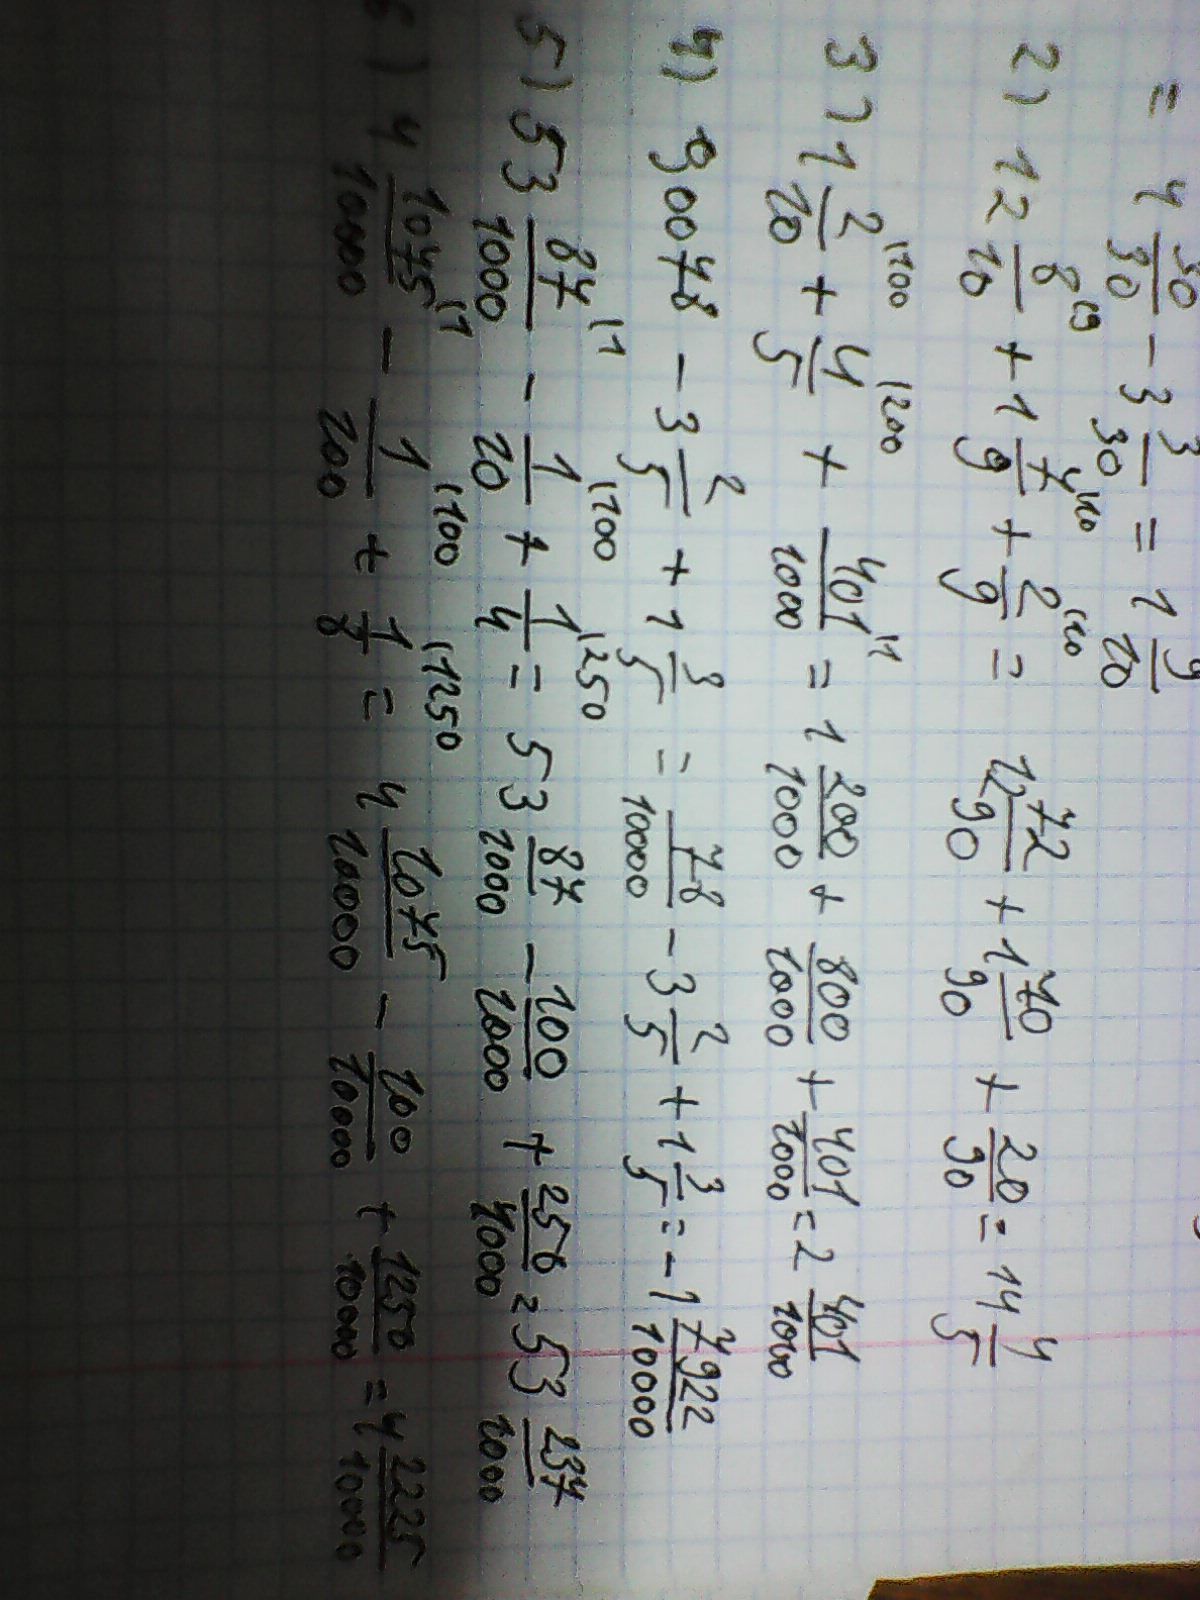 = 4 30/30 - 3 3/30 = 1 9/10
2) 12 8/10 + 1 7/9 + 2/9 = 12 72/90 + 1 70/90 + 20/90 = 14 4/5
3) 1 2/10 + 4/5 + 401/1000 = 1 200/1000 + 800/1000 + 401/1000 = 2 401/1000
4) 90078 - 3 2/5 + 1 3/5 = 78/10000 - 3 2/5 + 1 3/5 = -1 7922/10000
5) 53 87/1000 - 1/20 + 1/4 = 53 87/1000 - 100/1000 + 250/1000 = 53 237/1000
6) 4 1075/10000 - 1/100 + 1/8 = 4 1075/10000 - 100/10000 + 1250/10000 = 4 2225/10000